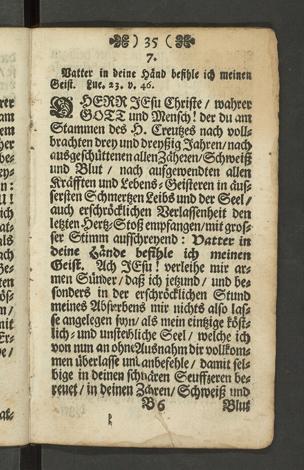 35
7.
Vatter in deine Händ befihle ich meinen
Geist. Luc. 23. v. 46.
O HERR JEsu Christe / wahrer
GOTT und Mensch! der du am
Stammen des H. Creutzes nach voll-
brachten drey und dreyßig Jahren / nach
ausgeschüttenen allen Zäheren / Schweiß
und Blut / nach aufgewendten allen
Kräfften und Lebens-Geisteren in äus-
sersten Schmertzen Leibs und der Seel /
auch erschröcklichen Verlassenheit den
letzten Hertz-Stoß empfangen / mit gros-
ser Stimm aufschreyend: Vatter in
deine Hände befihle ich meinen
Geist. Ach JEsu! verleihe mir ar-
men Sünder / daß ich jetzund / und be-
sonders in der erschröcklichen Stund
meines Absterbens mir nichts also las-
se angelegen seyn / als mein eintzige köst-
lich- und unsterbliche Seel / welche ich
von nun an ohne Ausnahm dir vollkom-
men überlasse und anbefehle / damit sel-
bige in deinen schwären Seuffzeren be-
reuet / in deinen Zären / Schweiß und
B 6 Blut